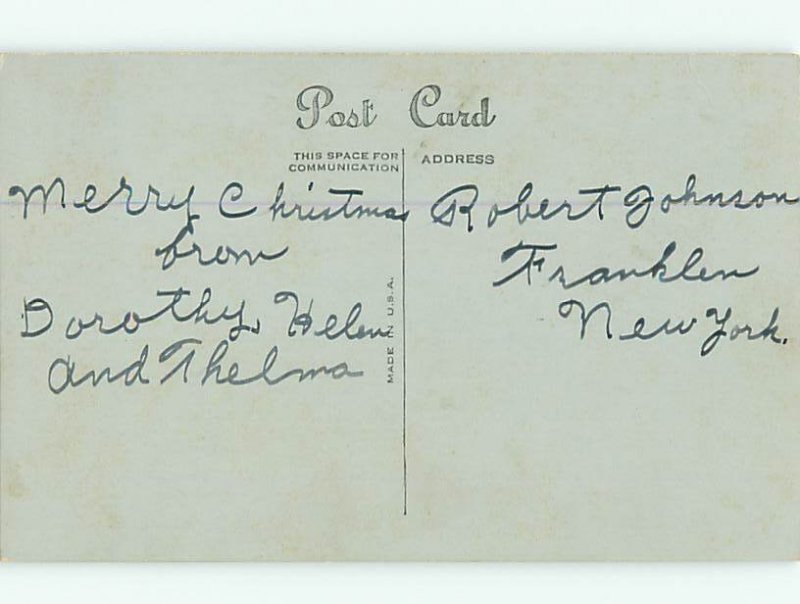 Post Card
THIS SPACE FOR
COMMUNICATION
ADDRESS
Merry Christmas
from
Dorothy, Helen
and Thelma
MADE IN U.S.A.
Robert Johnson
Franklen
New York.